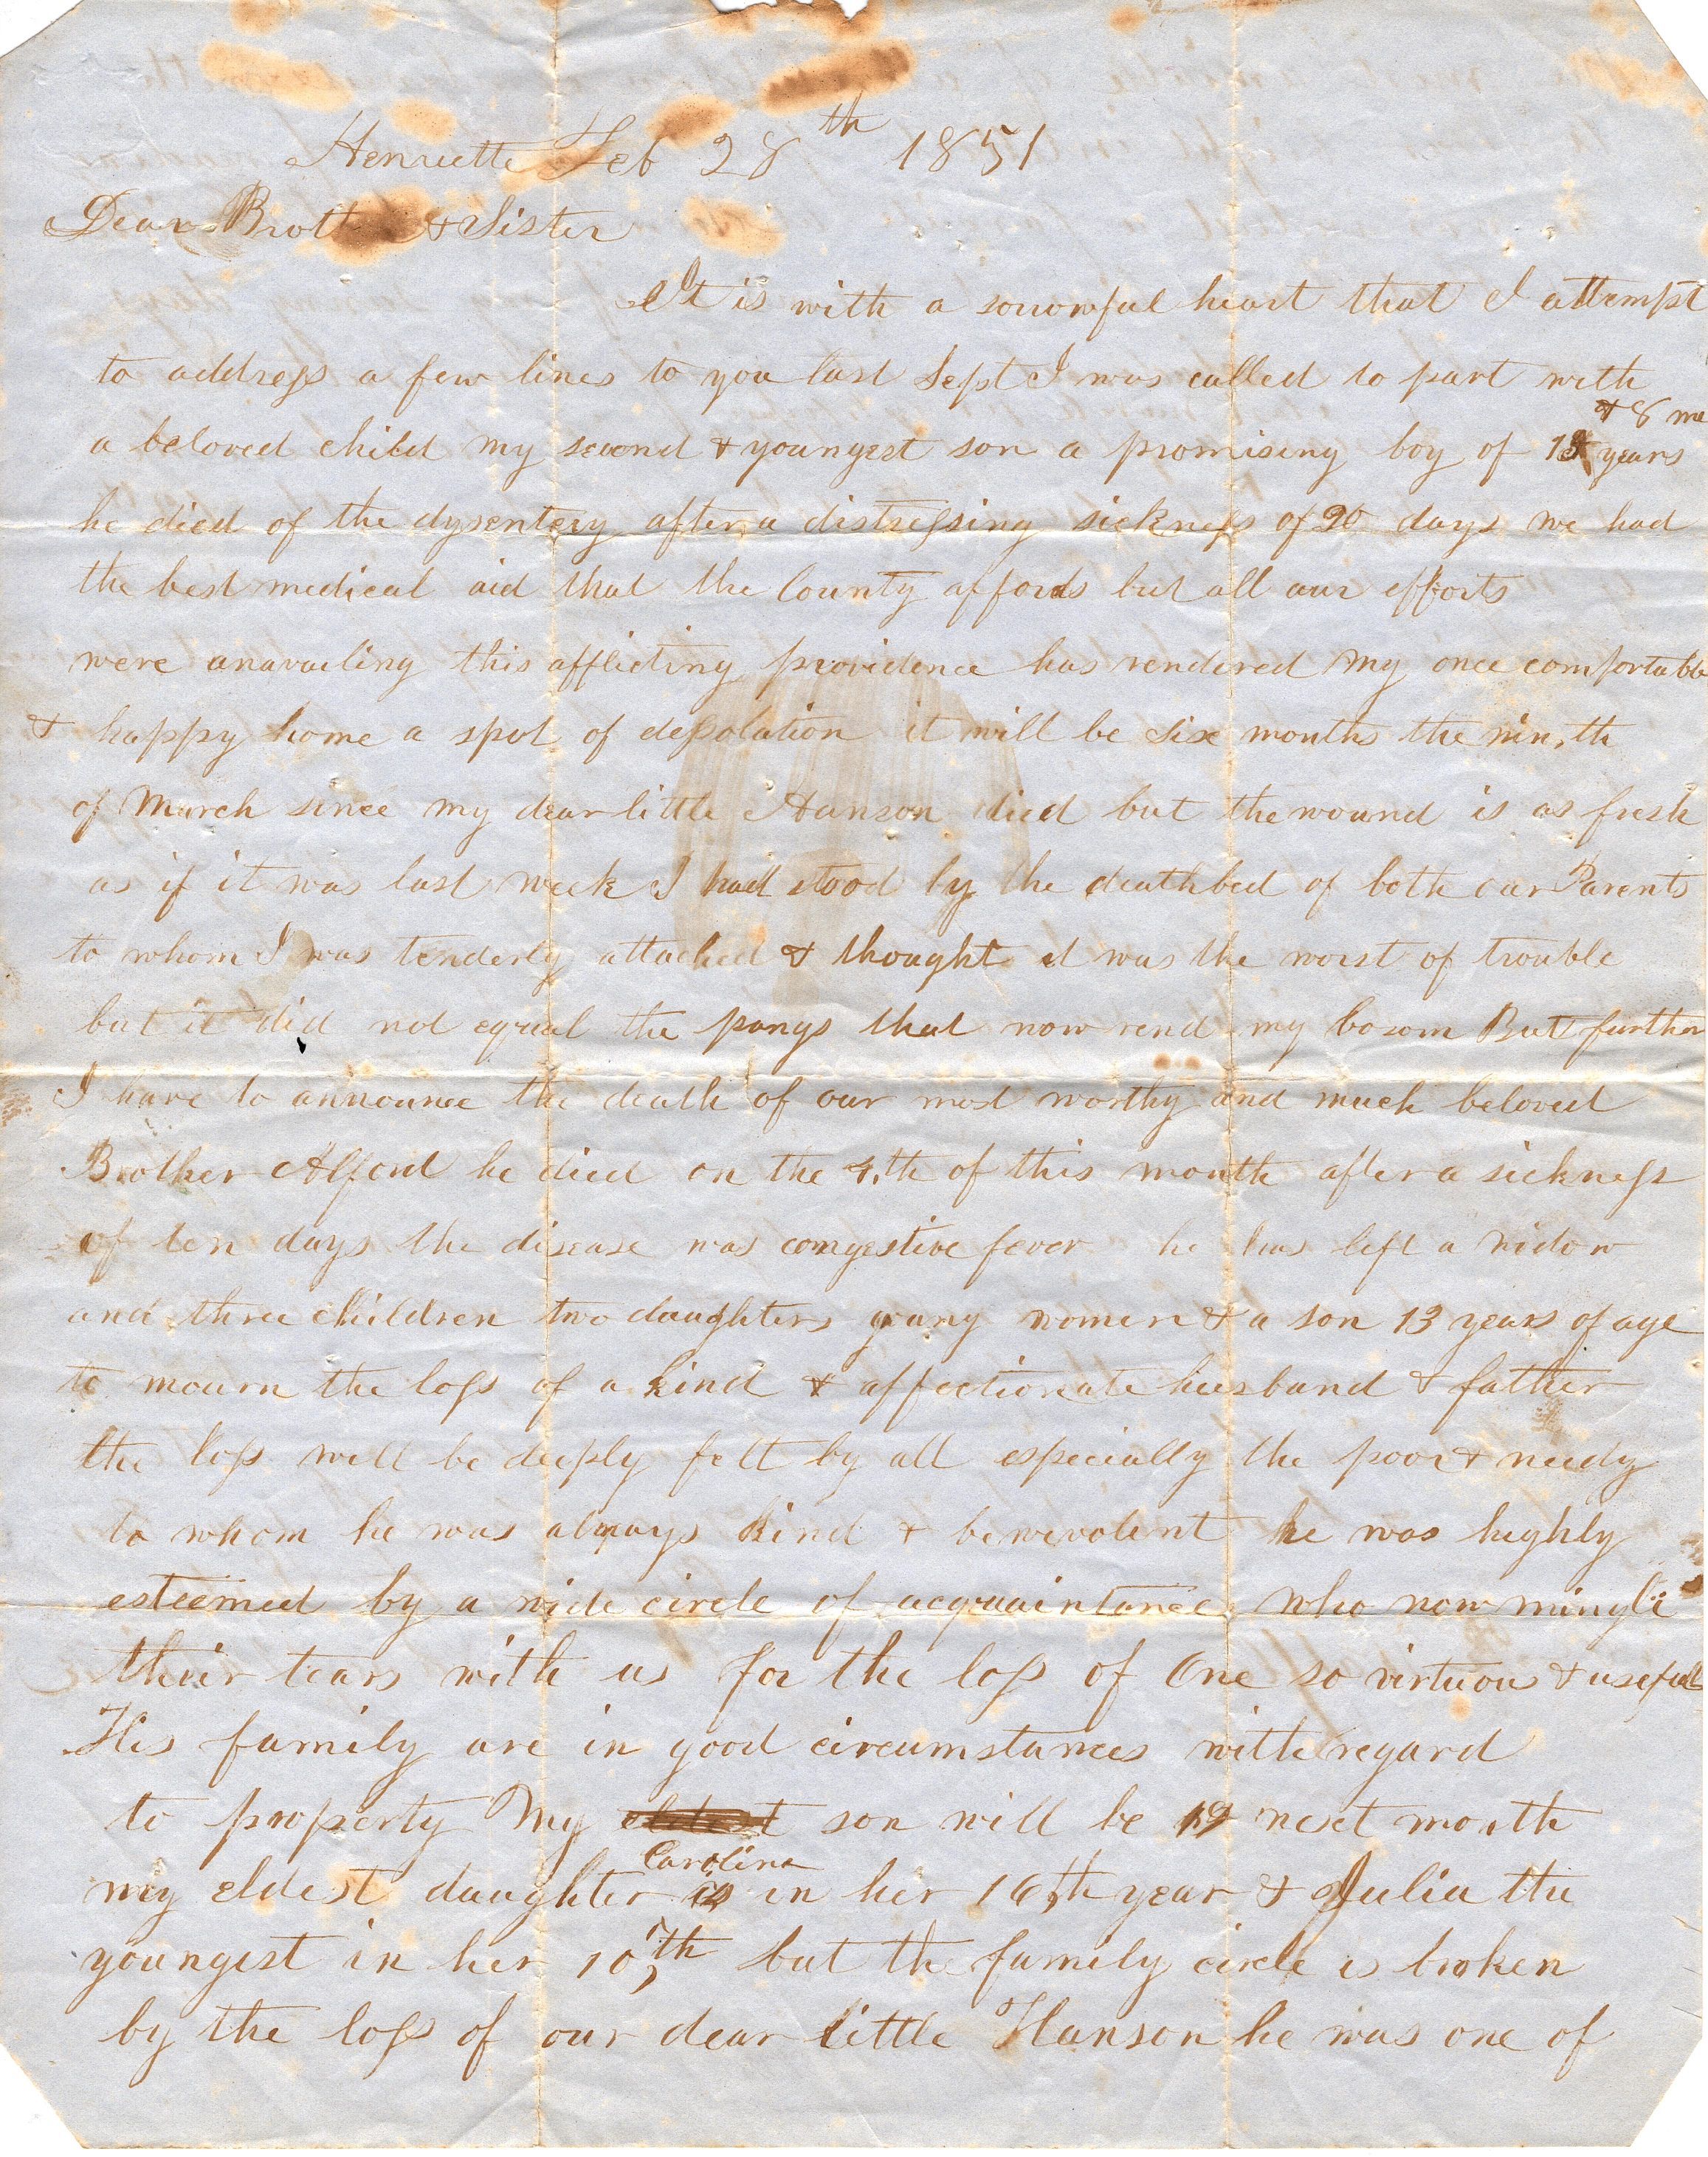 Henrietta Feb 28th 1851
Dear Brother & Sister
It is with a sorrowful heart that I attempt
to address a few lines to you last Sept I was called to part with
& 8 mo
a beloved child my second & youngest son a promising boy of years
he died of the dysentery after a distressing sickness of 20 days we had
the best medical aid that the County affords but all our efforts
were unavailing this afflicting providence has rendered my once comfortable
& happy home a spot of desolation it will be six months the ninth
of March since my dear little Hanson died but the wound is as fresh
as if it was last week I had stood by the deathbed of both our Parents
to whom I was tenderly attached & thought it was the worst of trouble
but it did not equal the pangs that now rend my bosom But further
I have to announce the death of our most worthy and much beloved
Brother Alford he died on the 4th of this month after a sickness
of ten days the disease was congestive fever he has left a widow
and three children two daughters young women & a son 13 years of age
to mourn the loss of a kind & affectionate husband & father
the loss will be deeply felt by all especially the poor & needy
to whom he was always kind & benevolent he was highly
esteemed by a wide circle of acquaintance who now mingle
their tears with us for the loss of One so virtuous & usefull
His family are in good circumstances with regard
to property My eldest son will be 19 next month
Carolina
my eldest daughter is in her 16th year & Julia the
youngest in her 10th but the family circle is broken
by the loss of our dear little Hanson he was one of